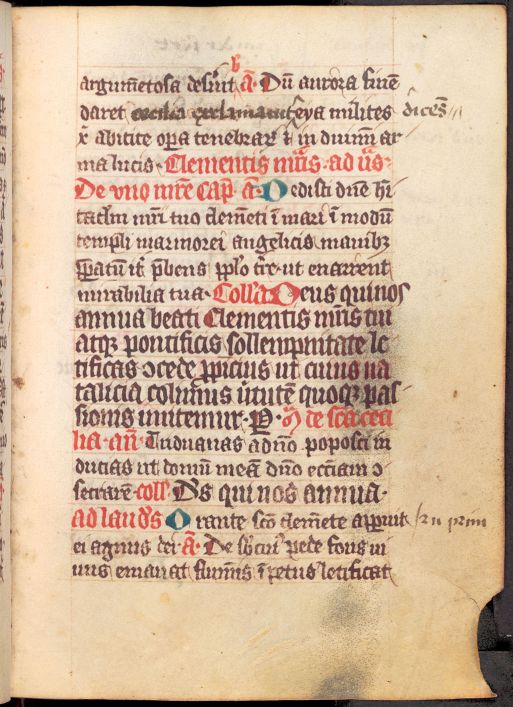 argumētosa deſuit a Dū aurora finē
daret cecilia exclamauit eya milites dicēs
x̄ abicite oꝑa tenebraꝝ ⁊ induimī ar
ma lucis Clementis mr̄is ad vs̄
De vno mr̄e cap̄ a Dedisti dn̄e hī
tac̄lm mr̄i tuo clemēti ī mari ī modū
templi marmorei angelicis manibꝫ
ꝑatū it̄ p̄bens ꝑpl̄o tr̄e ut enarrent
mirabilia tua Coll̄a Deus qui nos
annua beati Clementis mr̄is tui
atqꝫ pontificis sollempnitate le
tificas ꝯcede ꝓpicius ut cuius na
talicia colimus v̄tutē quoqꝫ pas
sionis imitemur P de sc̄a ceci
lia an̄ Triduanas a dn̄o poposci in
ducias ut domū meā dn̄o eccīam ꝯ
secrarē coll̄ Ds̄ qui nos annua
ad laudes Orante sc̄o clemēte apꝑuit
ei agnus dei A De sb̄ cui͛ pede fons ui
uus emanat flumīs īpetus letificat